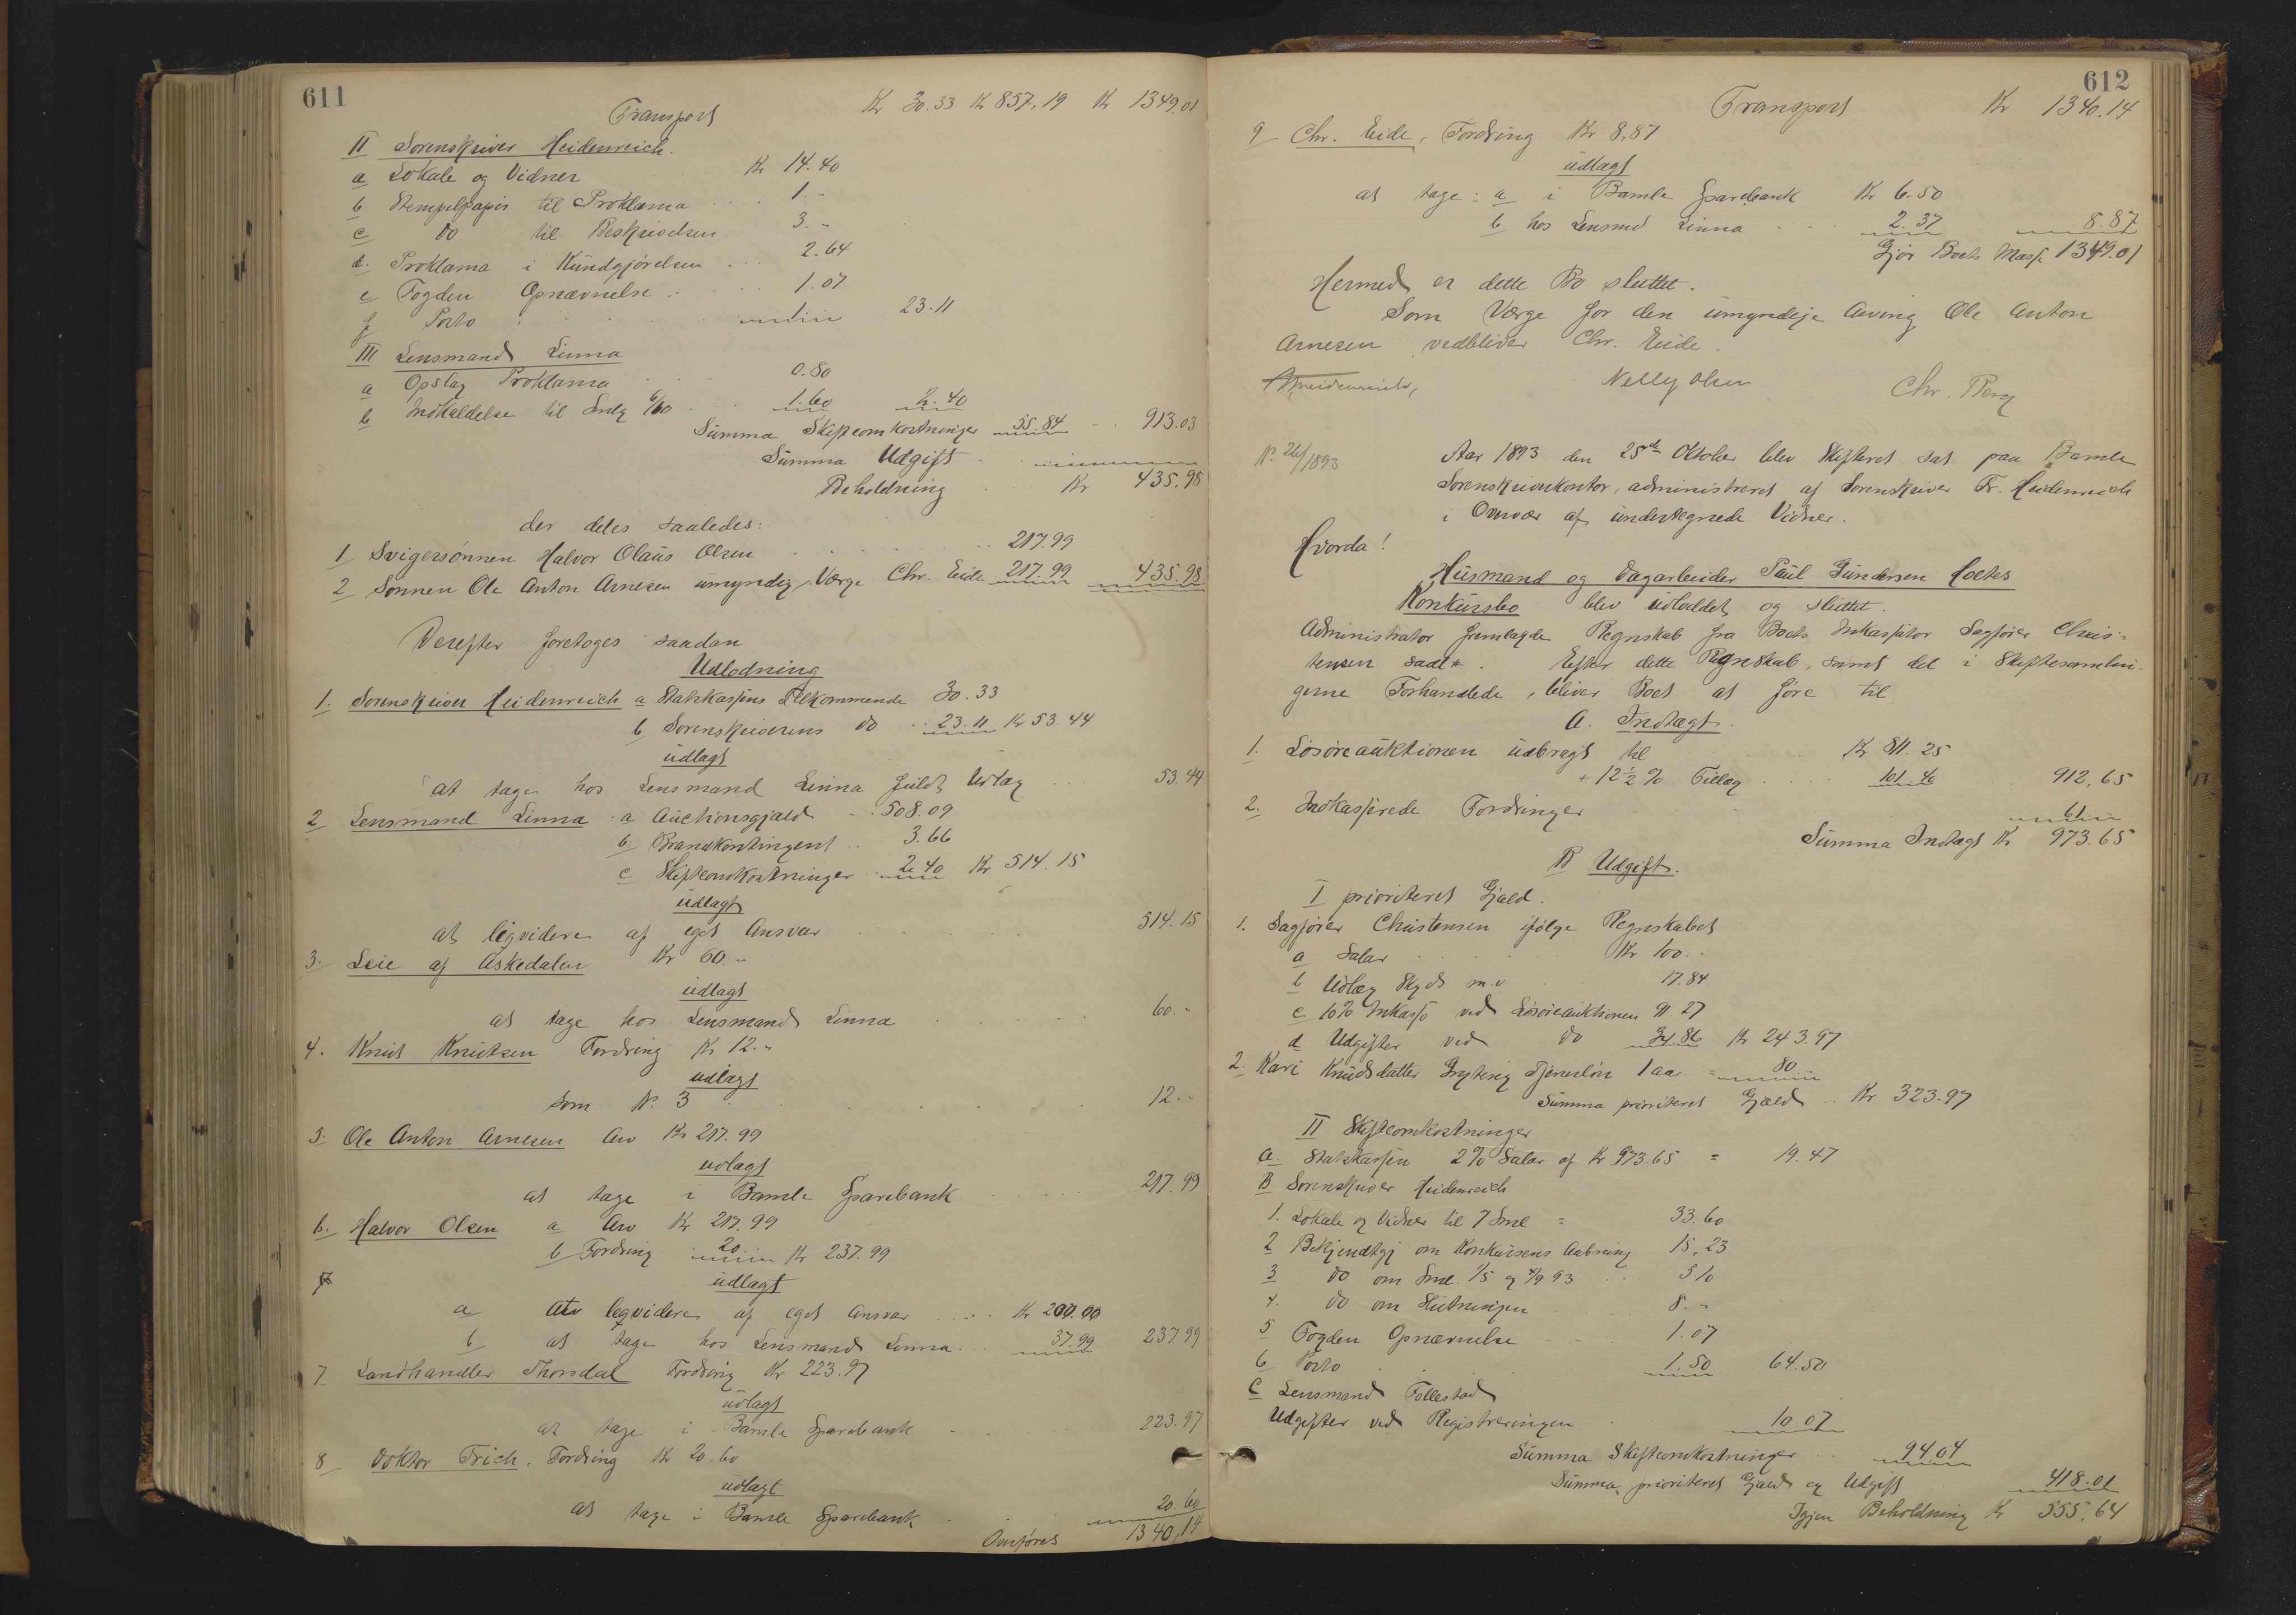 611
Transport Kr 30.33 Kr 857,19 Kr 1349.01
II Sorenskriver Heidenreich.
a Lokale og Vidner Kr 14.40
b Stempelpapir til Proklama 1.-
c Do til Beskrivelsen 3.-
d. Proklama i Kundgjørelsen 2.64
e Fogden Opnævnelse 1.07
f Porto 1 23.11
III Lensmand Linna
a Opslag Proklama 0.80
b Indkaldelse til Smlg 1.60 2.40
Summa Skifteomkostninger 55.84 913.03
Summa Udgift
Beholdning Kr 435,98
der deles saaledes:
1 Svigersønnen Halvor Olaus Olsen 217.99
2 Sønnen Ole Anton Arnesen umyndig, Værge Chr. Eide 217.99 435.98
Derefter foretoges saadan
Udlodning
1. Sorenskriver Heidenreich a Statskassens Tilkommende 30.33
b Sorenskriverens do 23.11 Kr 53.44
udlagt
at tage hos Lensmand Linna fuldt Udlæg 53.44
2 Lensmand Linna: a Auctionsgjæld 508.09
b. Brandkontingent 3.66
c Skifteomkostninger 2.40 Kr 514.15
udlagt
at liqvidere af eget Ansvar 514.15
3. Leie af Askedalen Kr 60.-
udlagt
at tage hos Lensmand Linna 60.-
4. Knut Knutsen Fordring Kr 12.-
udlagt
som N. 3 12.-
5. Ole Anton Arnesen Arv Kr 217.99
udlagt
at tage i Bamle Sparebank 217.99
6. Halvor Olsen a Arv Kr 217.99
b Fordring 20 Kr 237.99
7 udlagt
a At liqvidere af eget Ansvar Kr 200.00
b at tage hos Lensmand Linna 37.99 237.99
7 Landhandler Thorsdal Fordring Kr 223.97
udlagt
at tage i Bamle Sparebank 223.97
8 Doktor Frich, Fordring Kr 20.60
udlagt
at tage i Bamle Sparebank 20.60
Overføres 1340,14
612
Transport Kr 1340.14
9 Chr. Eide, Fordring Kr 8.87
udlagt
at tage: a i Bamle Sparebank Kr 6.50
b hos Lensmd Linna 2.37 8.87
Gjør Boets Masse 1349.01
Hermed er dette Bo sluttet.
Som Værge for den umyndige Arving Ole Anton
Arnesen vedbliver Chr. Eide.
Heidenreich, Nelly Olsen Chr. Berg
N. 26/1893 Aar 1893 den 25de Oktober blev Skifteret sat paa Bamle
Sorenskriverkontor, administreret af Sorenskriver Fr. Heidenreich
i Overvær af undertegnede Vidner.
Hvorda!
Husmand og Dagarbeider Paul Gundersen Holtes
Konkursbo blev udloddet og sluttet.
Administrator fremlagde Regnskab fra Boets Inkassator Sagfører Chris-
tensen saal. Efter dette Regnskab, samt det i Skiftesamlin-
gerne Forhandlede, bliver Boet at føre til
A. Indtægt.
1. Løsøreauktionen udbragt til Kr 811.25
+ 12 1/2 % Tillæg 101.40 912,65
2. Indkasserede Fordringer 61
Summa Indtægt Kr 973.65
B Udgift.
I prioriteret Gjæld.
1. Sagfører Christensen ifølge Regnskabet
a Salær Kr 100.-
b Udlæg Skyds m.v 17.84
c 10% Inkasso ved Løsøreauktionen 91.27
d Udgifter ved Do 34.86 Kr 243.97
2. Kari Knudsdatter Tjenerløn 1 aar 80
Summa prioriteret Gjæld Kr 323.97
II Skifteomkostninger
A. Statskassen 2% Salær af Kr 973.65 = 19.47
B Sorenskriver Heidenreich
1. Lokale og Vidner til 7 Sml = 33.60
2 Bekjendtgj om Konkursens Aabning 15,23
3 Do om Sml. 1/5 og 4/9 93 5 10
4. Do om Slutningen 8.-
5 Fogden Opnævnelse 1.07
6 Porto 1.50 64.50
C Lensmand Follestad
Udgifter ved Registreringen 10.07
Summa Skifteomkostninger 94.04
Summa prioriteret Gjæld og Udgift 418.01
Igjen Beholdning Kr 555,64